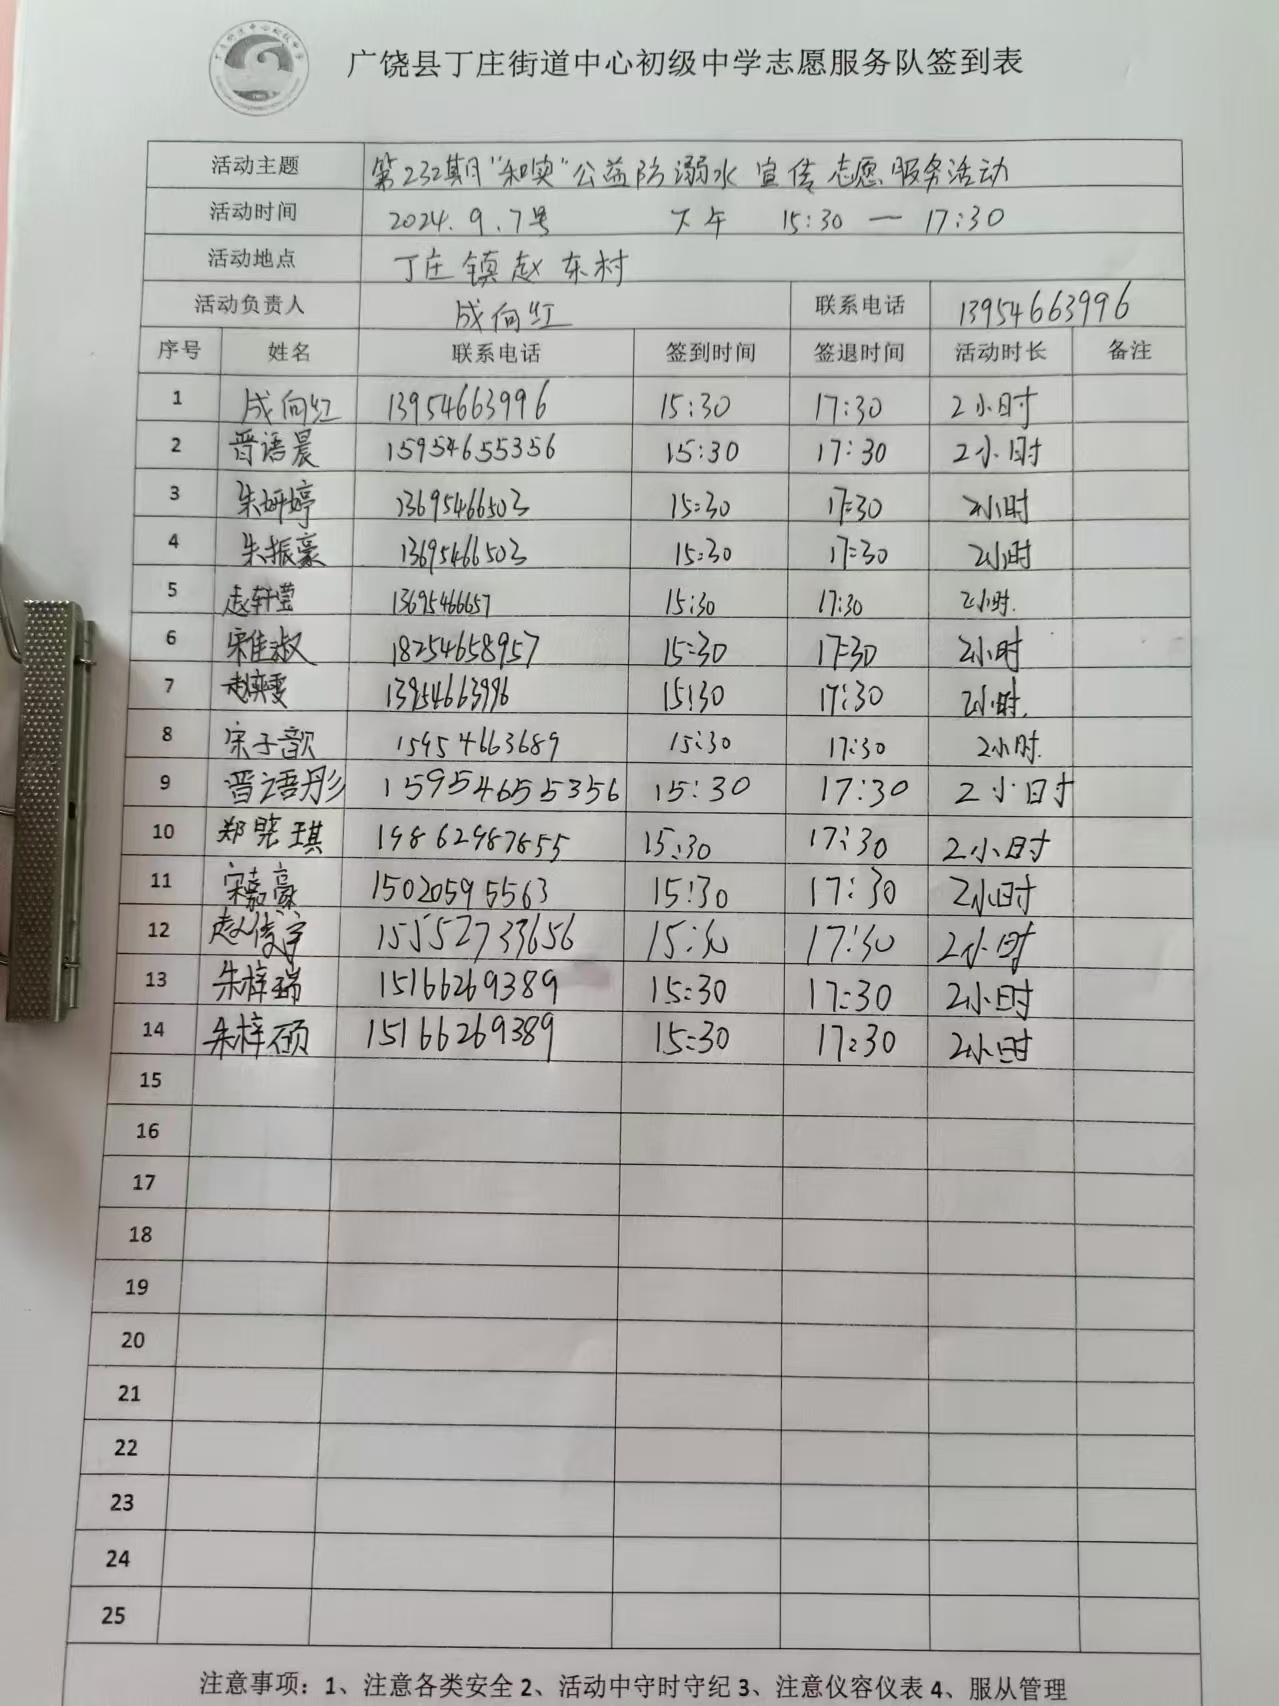 广饶县丁庄街道中心初级中学志愿服务队签到表
活动主题 第232期"和奕"公益防溺水宣传志愿服务活动
活动时间 2024.9.7号 下午 15:30 — 17:30
活动地点 丁庄镇赵东村
活动负责人 成向红 联系电话 13954663996
序号 姓名 联系电话 签到时间 签退时间 活动时长 备注
1 成向红 13954663996 15:30 17:30 2小时
2 晋语晨 15954655356 15:30 17:30 2小时
3 朱妍婷 13695466503 15:30 17:30 2小时
4 朱振豪 13695466503 15:30 17:30 2小时
5 赵轩莹 13695466657 15:30 17:30 2小时.
6 宋佳淑 18254658957 15:30 17:30 2小时
7 赵奕雯 13954663996 15:30 17:30 2小时.
8 宋子歆 15954663689 15:30 17:30 2小时.
9 晋语彤 15954655356 15:30 17:30 2小时
10 郑皓琪 19862987855 15:30 17:30 2小时
11 宋嘉豪 15020595563 15:30 17:30 2小时
12 赵俊宇 15552733656 15:30 17:30 2小时
13 朱梓瑞 15166269389 15:30 17:30 2小时
14 朱梓硕 15166269389 15:30 17:30 2小时
15
16
17
18
19
20
21
22
23
24
25
注意事项：1、注意各类安全 2、活动中守时守纪 3、注意仪容仪表 4、服从管理